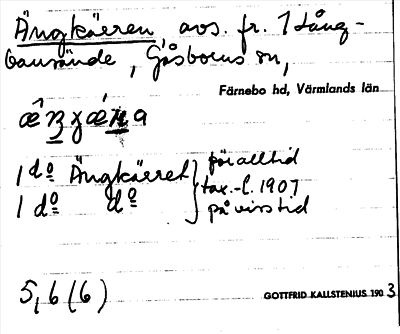 Ängkärren, avs. fr. 1 Lång-
bansände, Gåsborns sn,
Färnebo hd, Värmlands län
1 dº Ängkärret } för alltid
tax.-l. 1907
1 dº dº på viss tid
5, 6 (6)
GOTTFRID KALLSTENIUS 1903